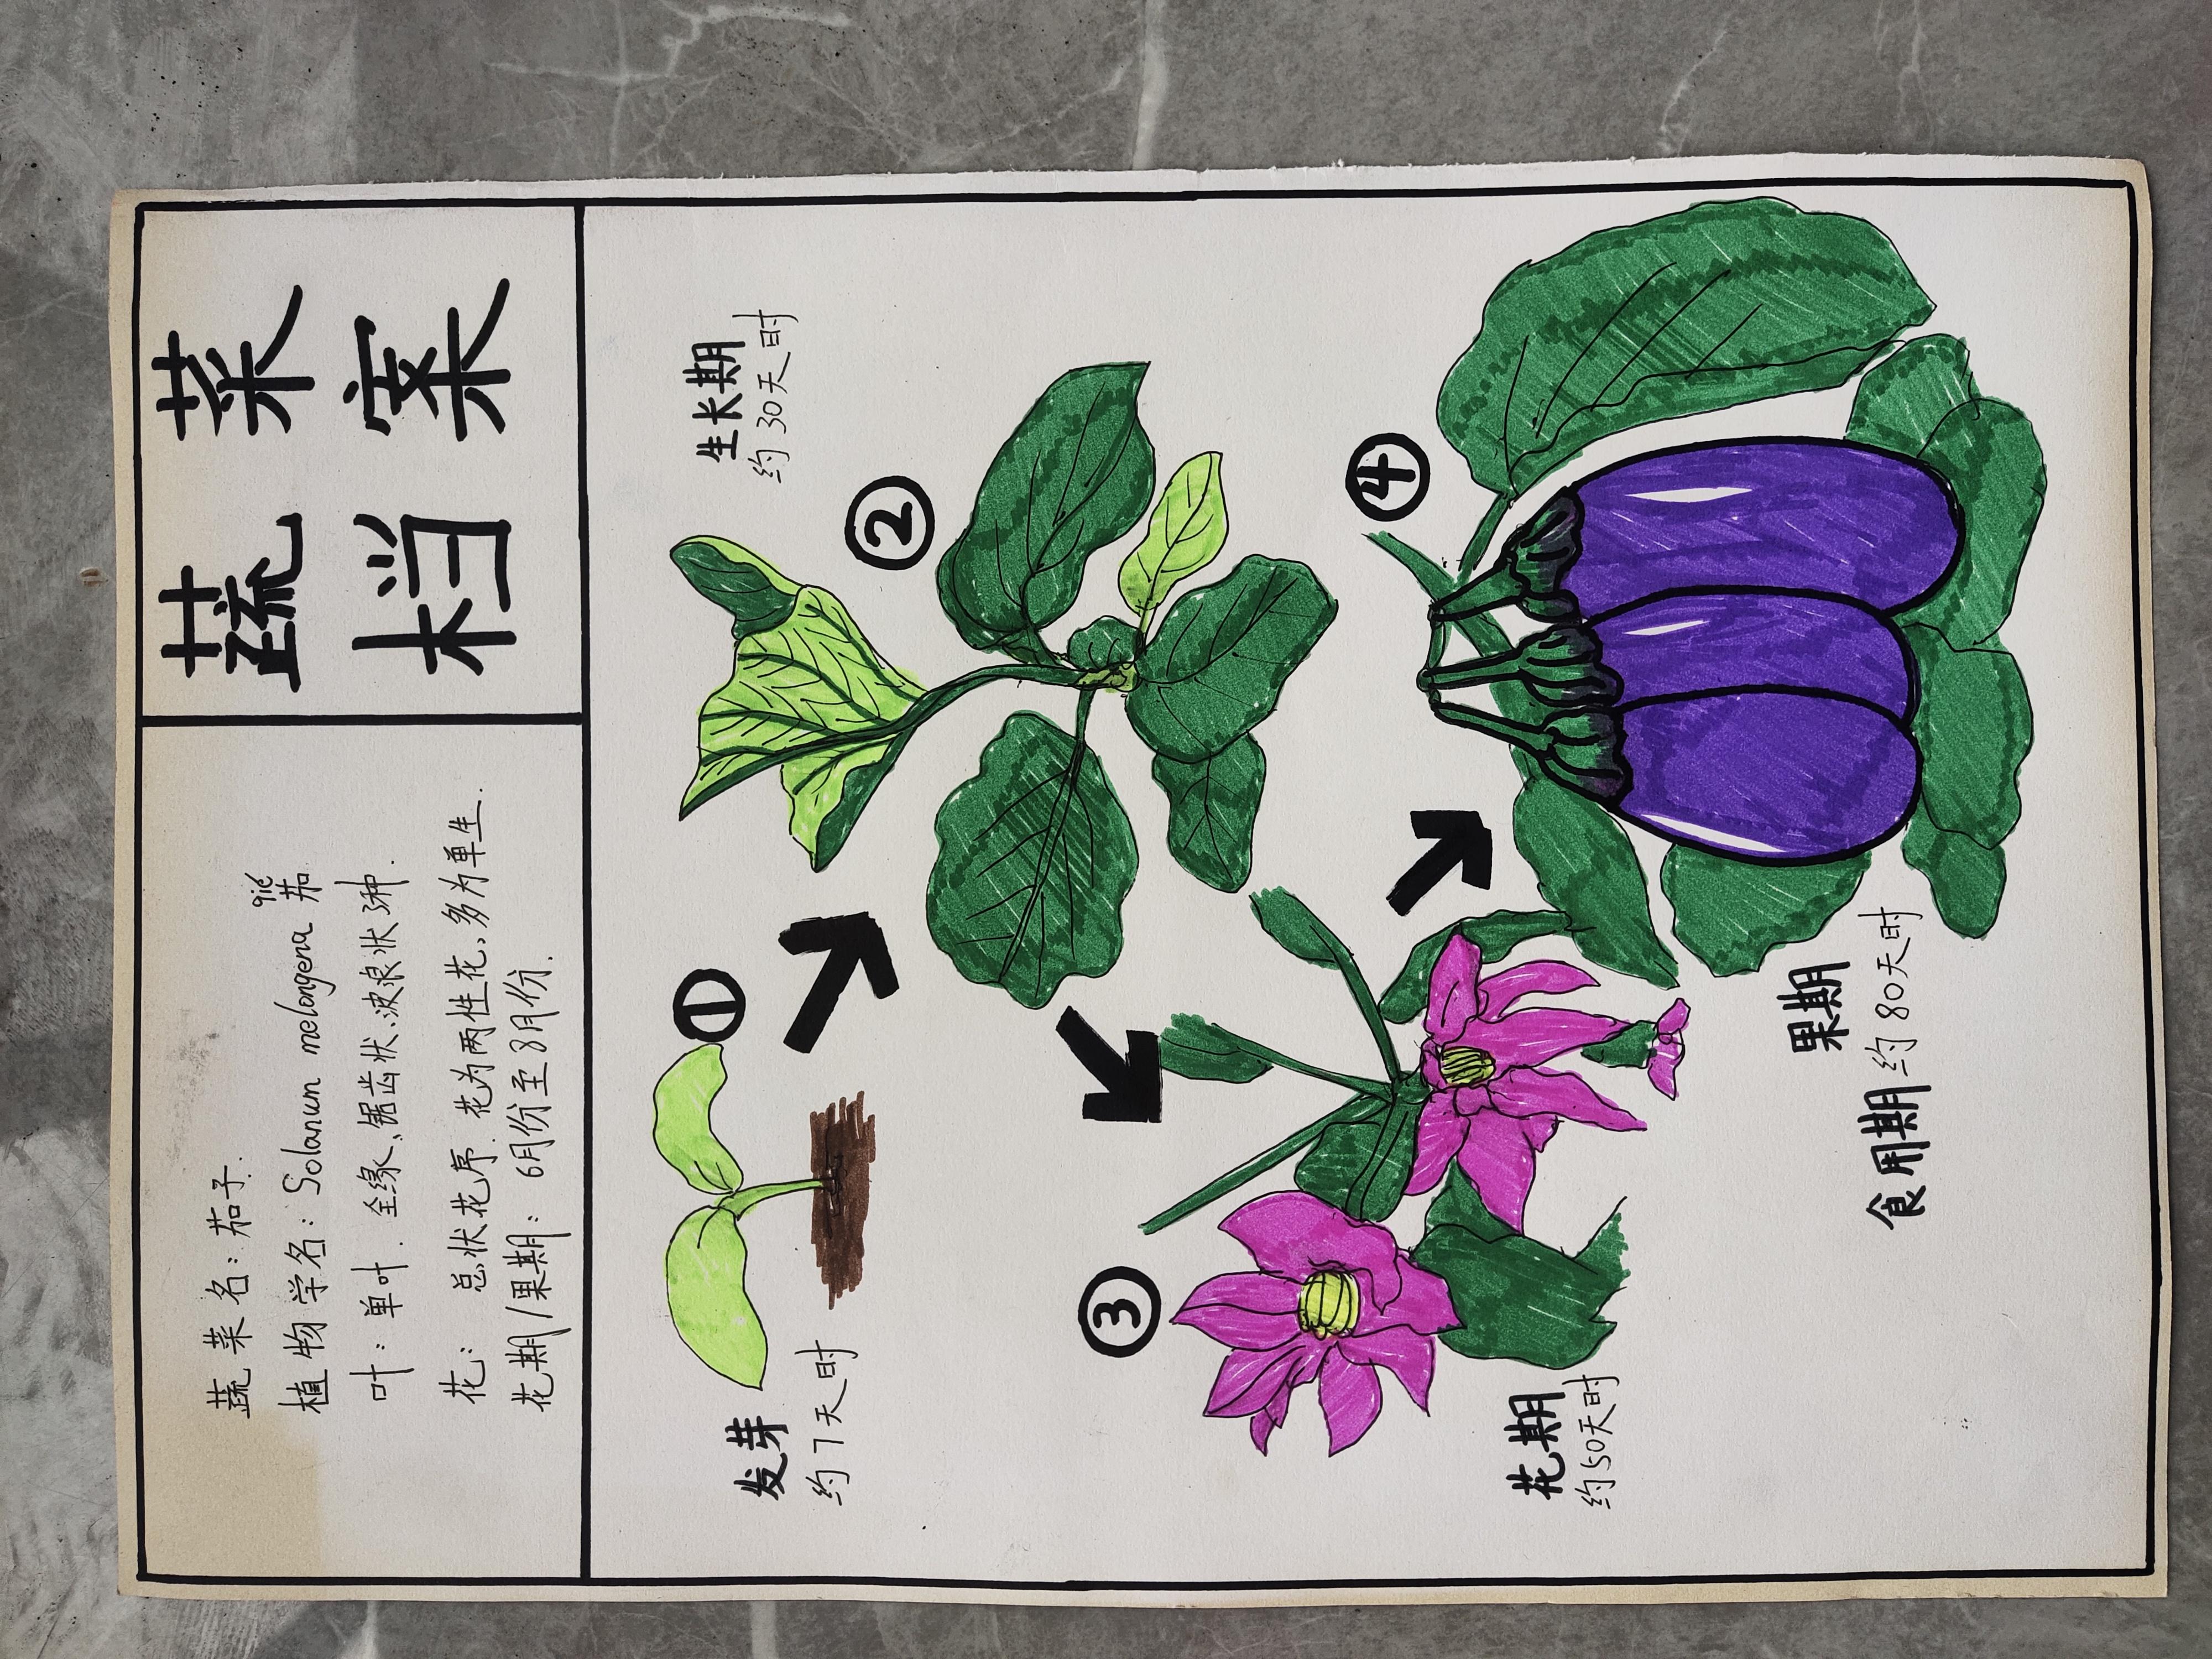 蔬菜名：茄子.
植物学名：Solanum melongena 茄 qié
叶：单叶.全缘、锯齿状、波浪状3种.
花：总状花序.花为两性花,多为单生.
花期/果期：6月份至8月份.
蔬菜
档案
①
发芽
约7天时
②
生长期
约30天时
③
花期
约50天时
④
果期
食用期 约80天时